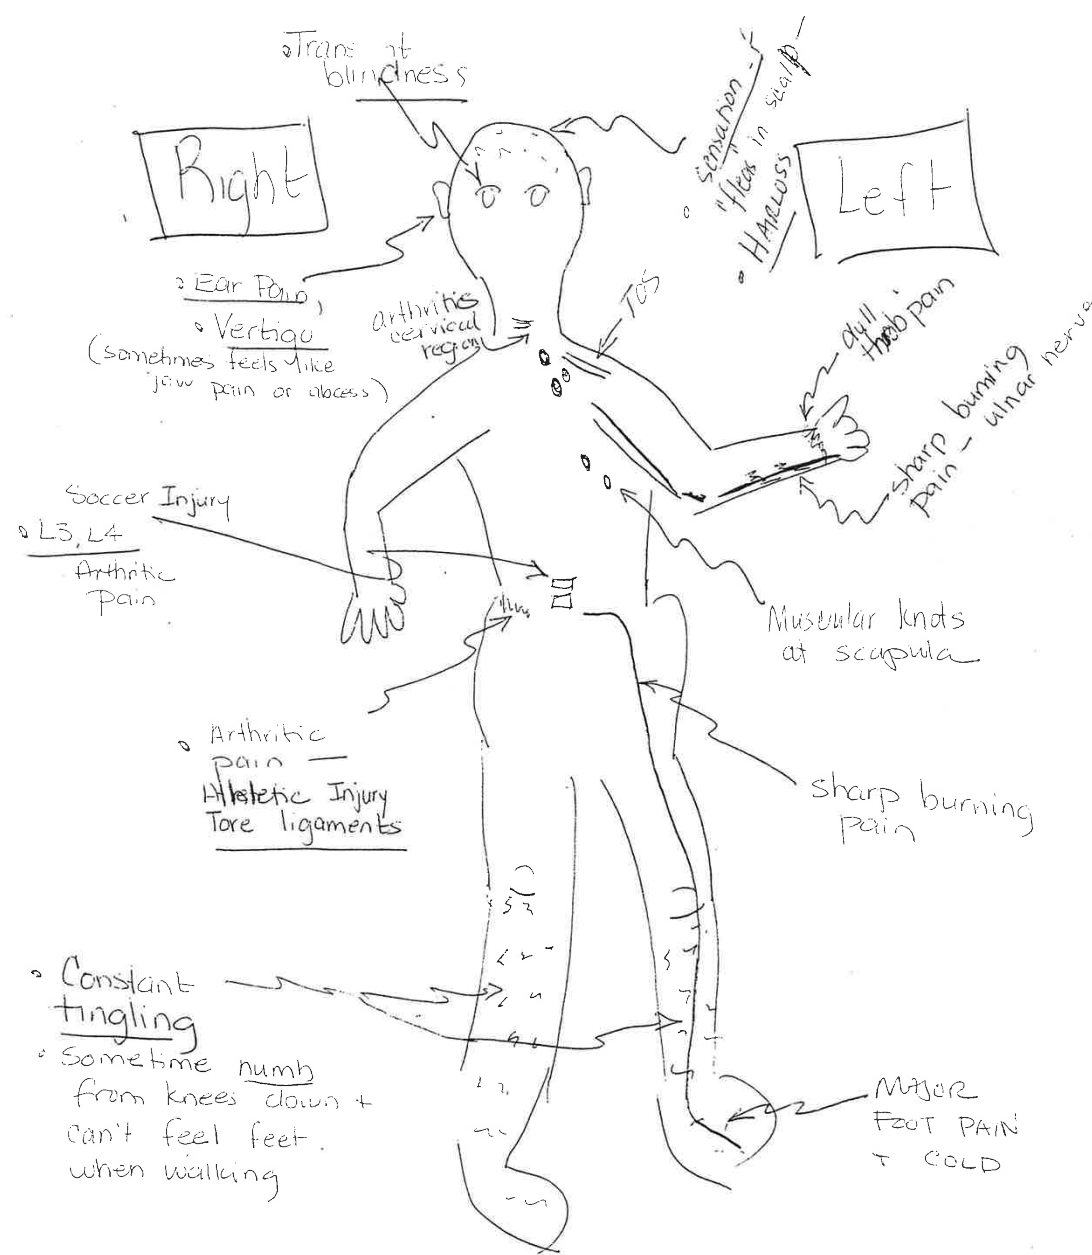 blindness
Right
Left
sensation
"fleas" in scalp
HAIRLOSS
Ear Pain,
Vertigo
(sometimes feels like
jaw pain or abcess)
arthritis
cervical
region
TOS
dull
throb pain
sharp burning
pain - ulnar nerve
Soccer Injury
L3, L4
Arthritic
pain
Muscular knots
at scapula
Arthritic
pain —
Athletic Injury
Tore ligaments
sharp burning
pain
Constant
tingling
Sometime numb
from knees down +
can't feel feet
when walking
MAJOR
FOOT PAIN
+ COLD